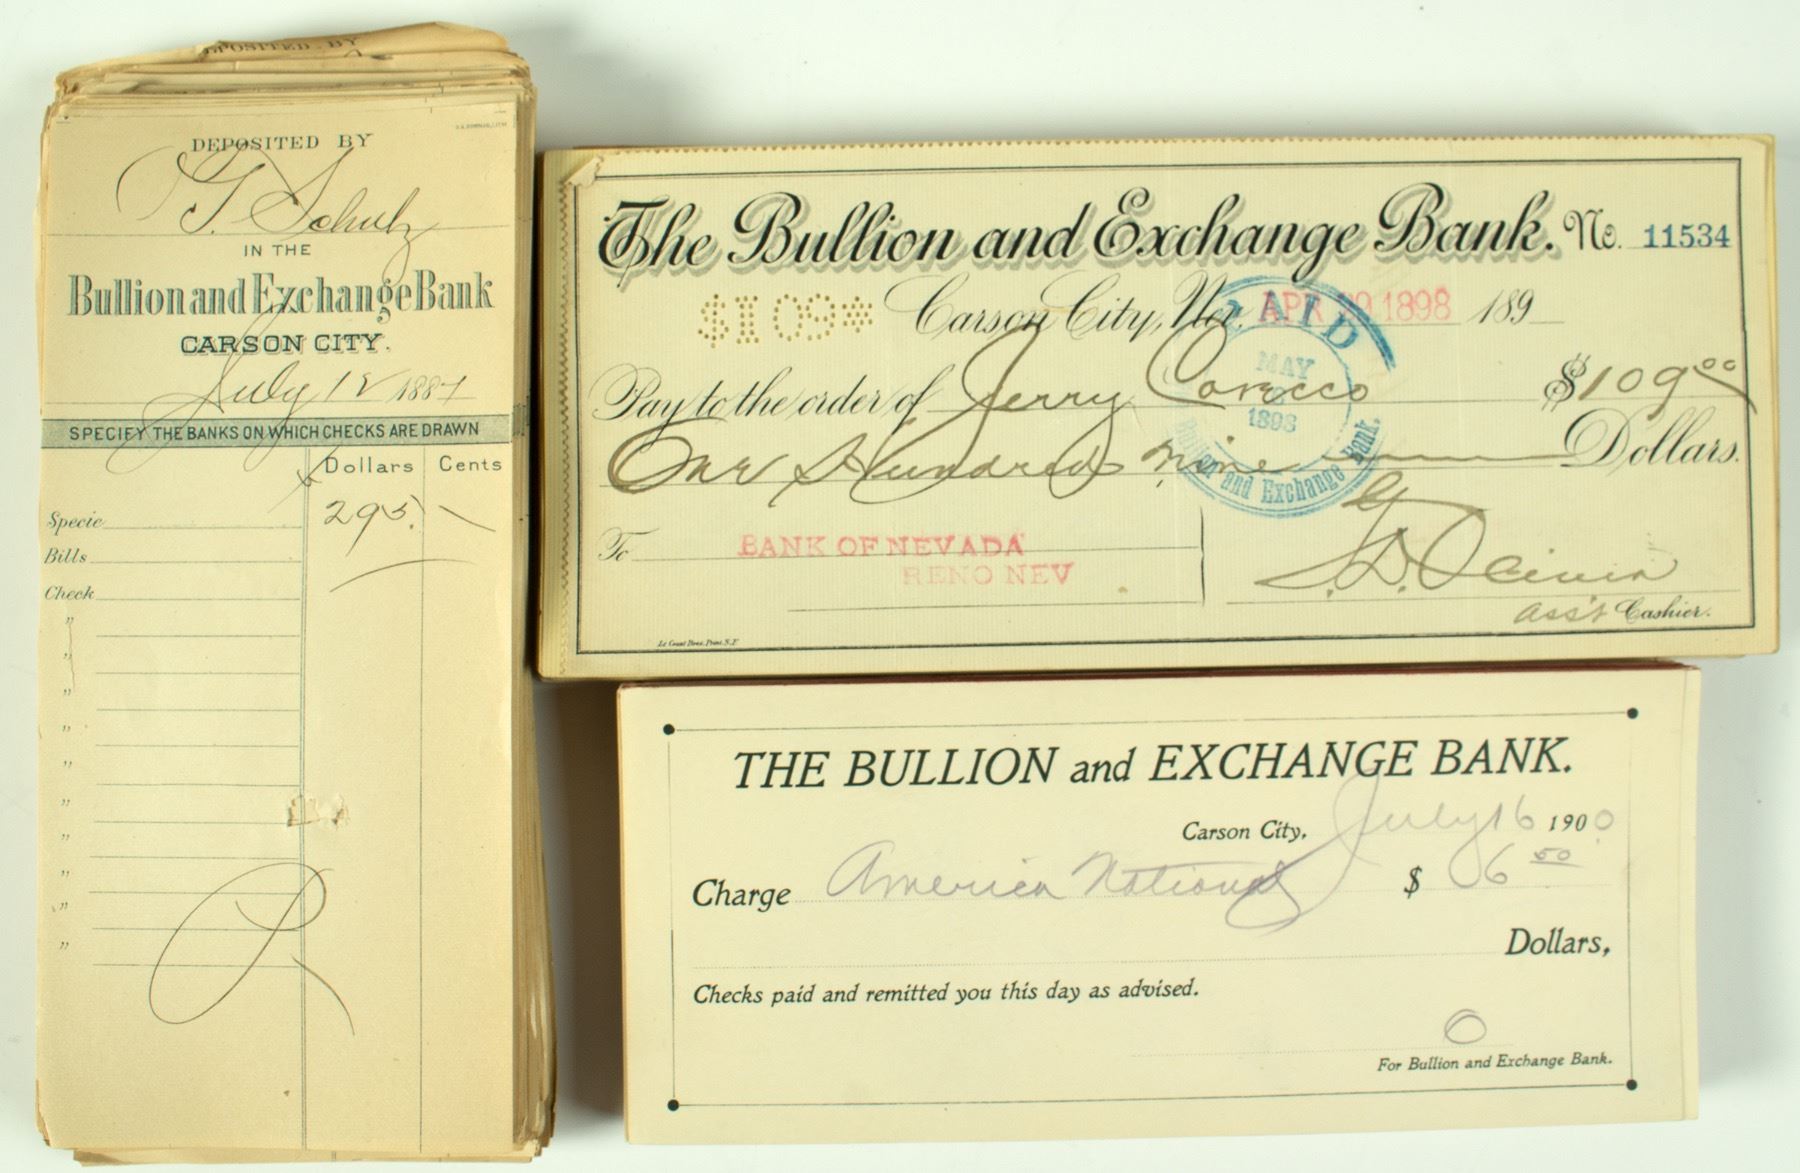 DEPOSITED BY
DEPOSITED BY
G. Schulz
IN THE
Bullion and Exchange Bank
CARSON CITY.
July 12 1887
SPECIFY THE BANKS ON WHICH CHECKS ARE DRAWN
Dollars Cents
Specie 295. —
Bills
Check
"
"
"
"
"
"
"
"
"
"
The Bullion and Exchange Bank. No. 11534
$109* Carson City, Nev. APR 29 1898 189
Pay to the order of Jerry $109.00
One Hundred Nine Dollars.
PAID
MAY
1898
Bullion and Exchange Bank.
To BANK OF NEVADA
RENO NEV
Ass't Cashier.
Le Count Bros. Print. S.F.
THE BULLION and EXCHANGE BANK.
Carson City, July 16 1900
Charge America National $ 6 50
Dollars,
Checks paid and remitted you this day as advised.
O
For Bullion and Exchange Bank.